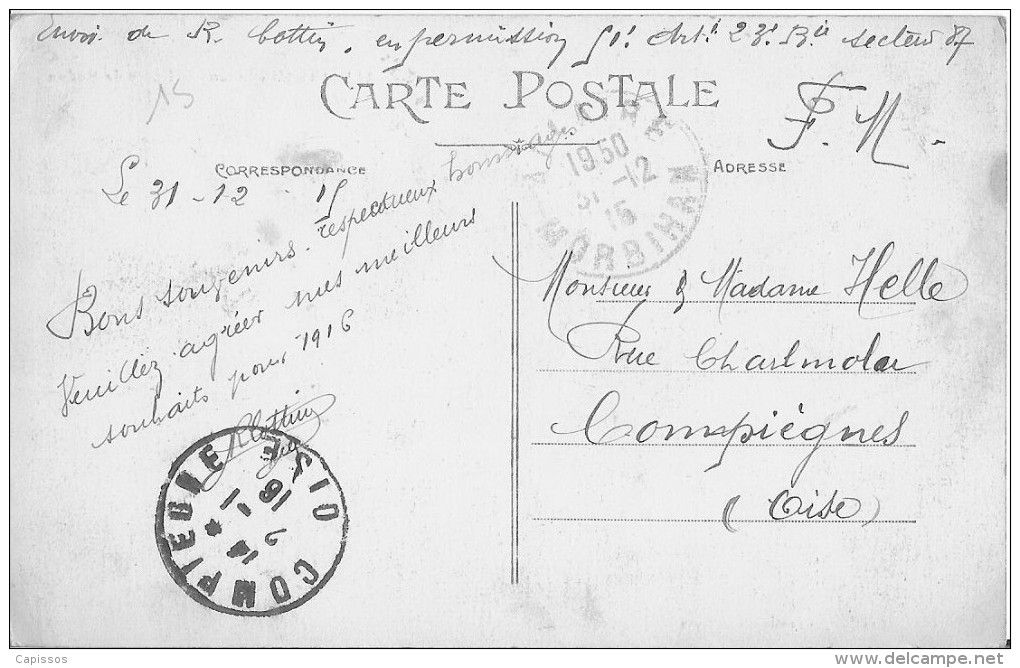 Envoi de R. Cottin, en permission 51e Arti 23e Bie secteur 87
15
CARTE POSTALE
F. M.
CORRESPONDANCE
ADRESSE
Le 31-12-15
Bons souvenirs. respectueux hommages
Veuillez agréer mes meilleurs
souhaits pour 1916
RCottin
Monsieur & Madame Helle
Rue Charlmolue
Compiègnes
(Oise)
1950
31-12
15
MORBIHAN
COMPIEGNE
OISE
14 * 2
1
16
Capissos
delcampe.net